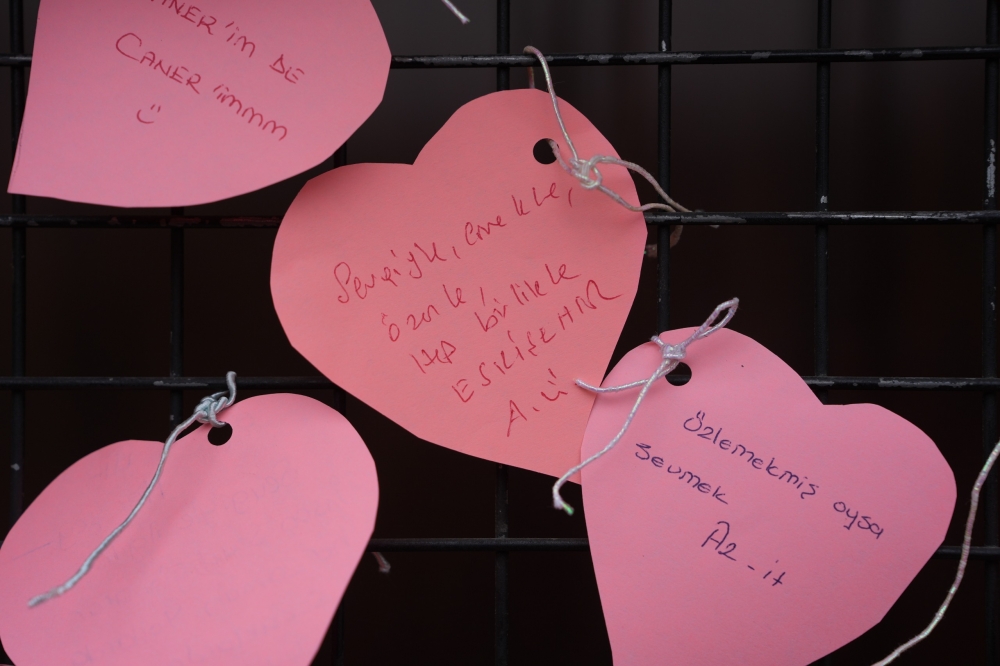 NER'im DE
CANER'immm
Sevgiyle, emekle,
özenle,
HEP birlikte
ESKİŞEHİR
A.Ü
Özlemekmiş oysa
sevmek